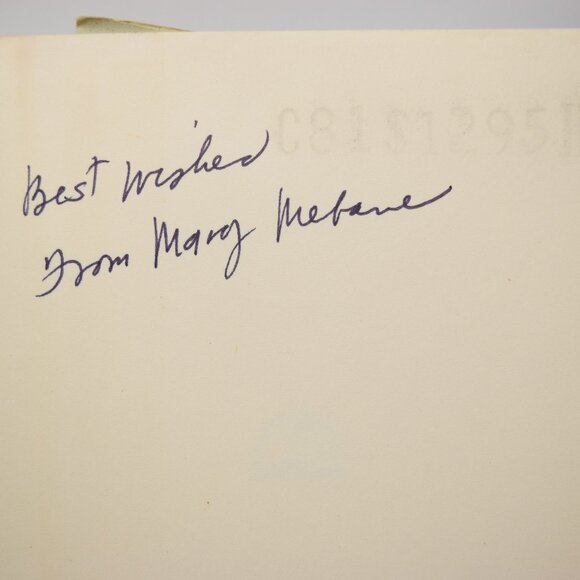 Best Wishes
From Mary Mebane